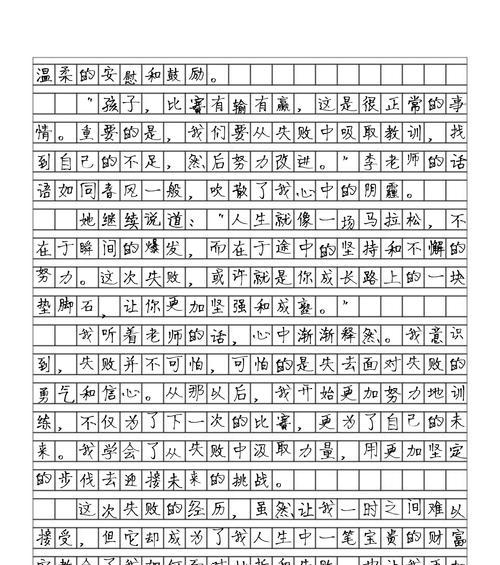 温柔的安慰和鼓励。
“孩子，比赛有输有赢，这是很正常的事
情。重要的是，我们要从失败中吸取教训，找
到自己的不足，然后努力改进。”李老师的话
语如同春风一般，吹散了我心中的阴霾。
她继续说道：“人生就像一场马拉松，不
在于瞬间的爆发，而在于途中的坚持和不懈的
努力。这次失败，或许就是你成长路上的一块
垫脚石，让你更加坚强和成熟。”
我听着老师的话，心中渐渐释然。我意识
到，失败并不可怕，可怕的是失去面对失败的
勇气和信心。从那以后，我开始更加努力地训
练，不仅为了下一次的比赛，更为了自己的未
来。我学会了从失败中汲取力量，用更加坚定
的步伐去迎接未来的挑战。
这次失败的经历，虽然让我一时之间难以
接受，但它却成为了我人生中一笔宝贵的财富